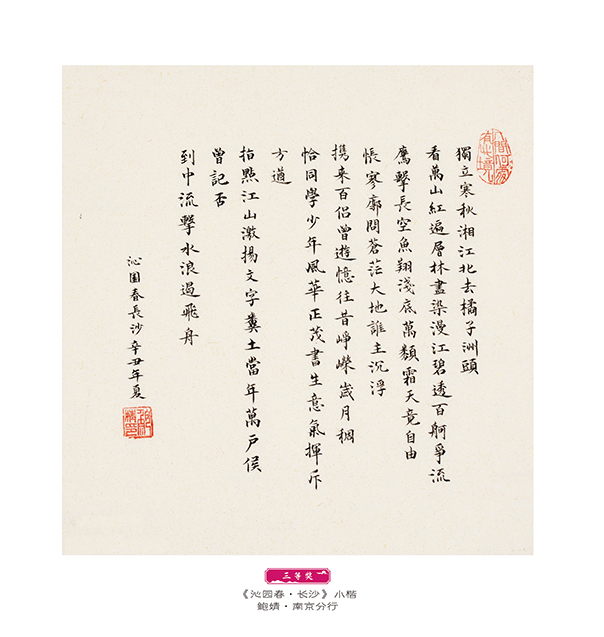 獨立寒秋湘江北去橘子洲頭
看萬山紅遍層林盡染漫江碧透百舸爭流
鷹擊長空魚翔淺底萬類霜天竟自由
悵寥廓問蒼茫大地誰主沉浮
攜来百侣曾遊憶往昔崢嶸歲月稠
恰同學少年風華正茂書生意氣揮斥
方遒
指點江山激揚文字糞土當年萬戶侯
曾記否
到中流擊水浪遏飛舟
沁園春長沙辛丑年夏
三等奖
《沁园春·长沙》小楷
鲍婧·南京分行